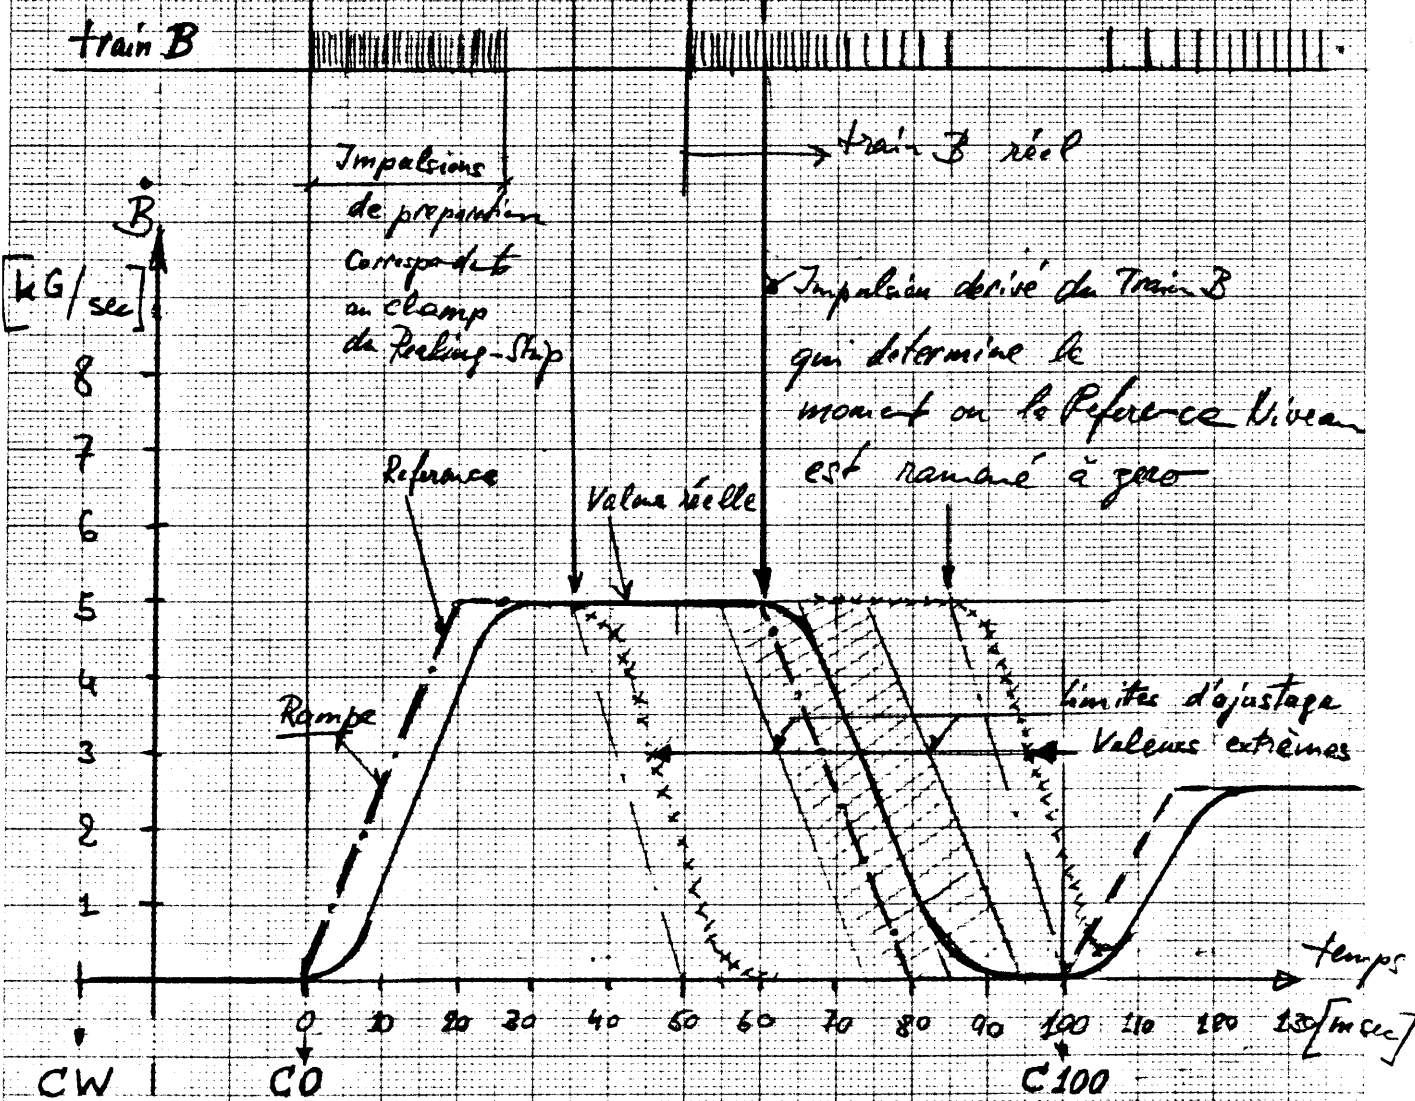 train B
train B réel
Impulsions
de preparation
Correspondants
au champ
du Peaking-Strip
Ḃ
[kG/sec]
Impulsion derivé du Train B
qui determine le
moment ou la Reference Niveau
est ramané à zero
8
7
6
5
4
3
2
1
Reference
Valeur réelle
Rampe
Limites d'ajustage
Valeurs extrêmes
temps
0 10 20 30 40 50 60 70 80 90 100 110 120 130 [msec]
CW C0 C100